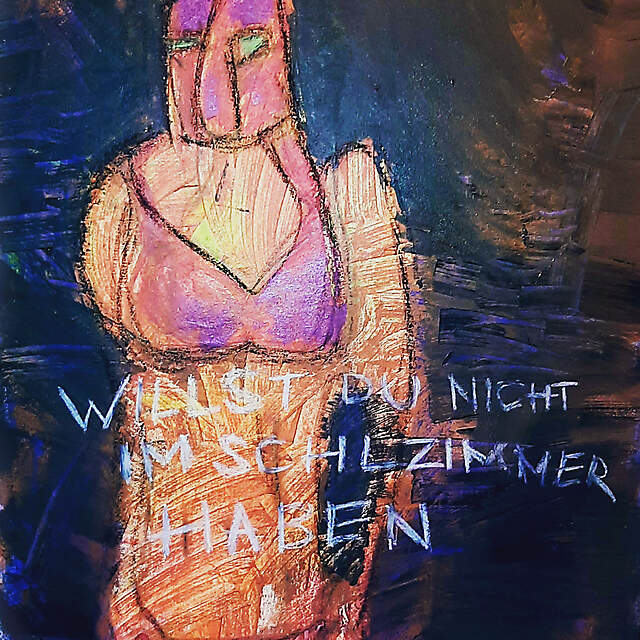 WILLST DU NICHT
IM SCHLZIMMER
HABEN